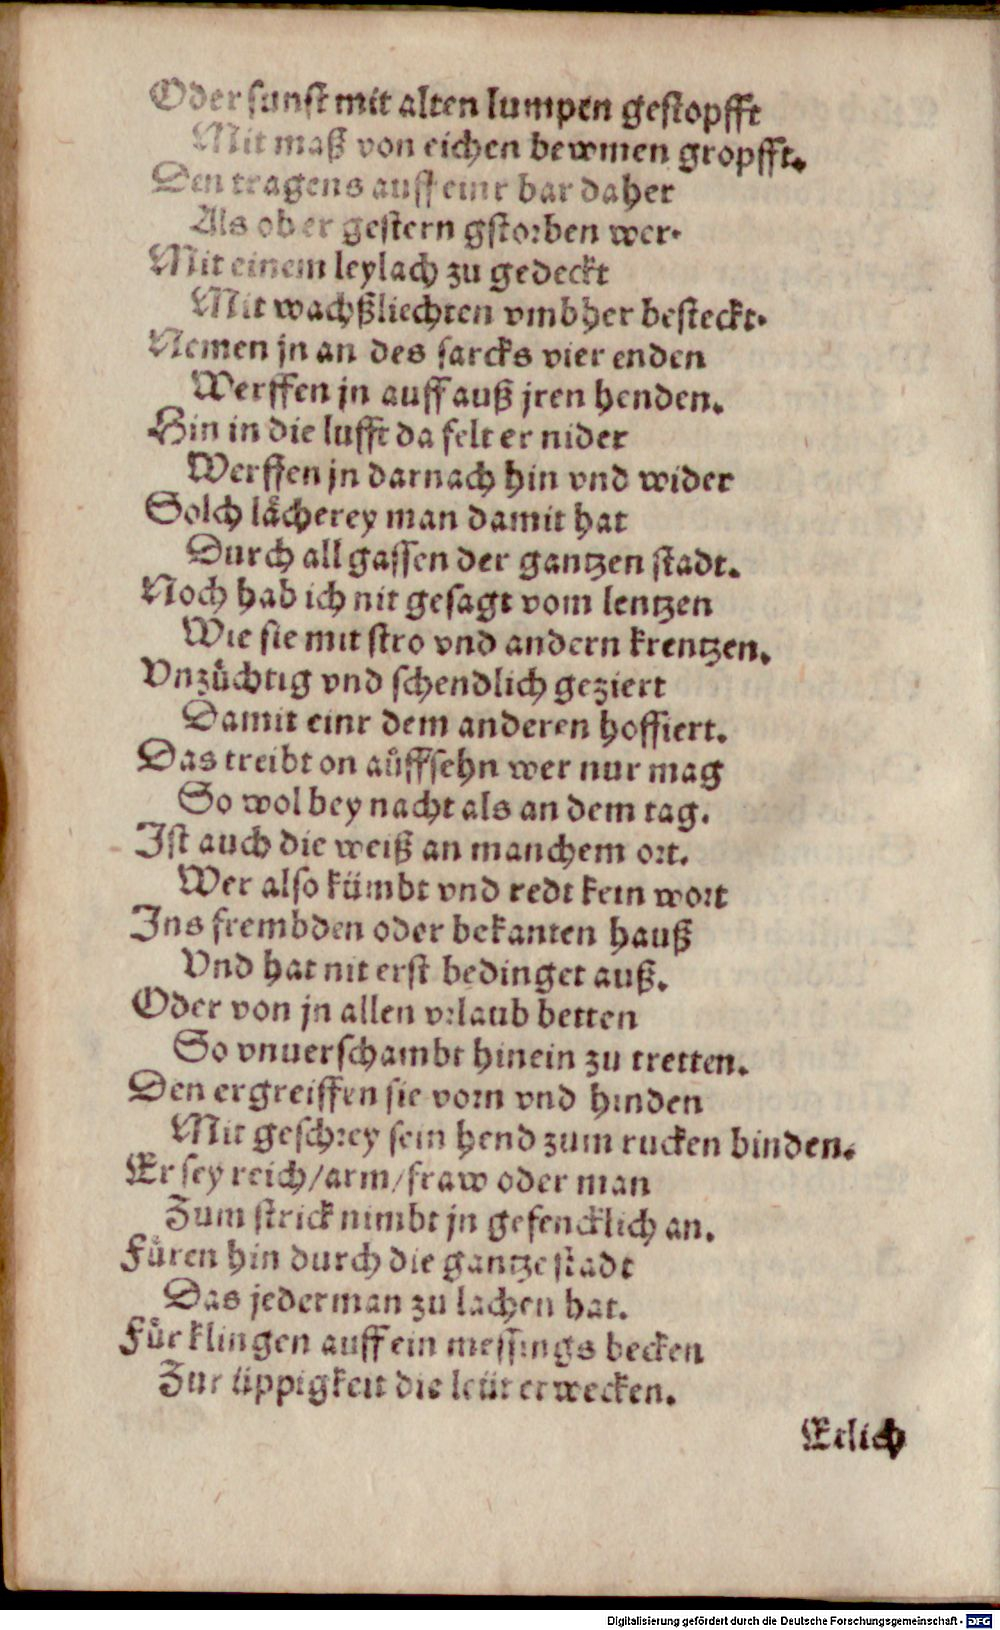 Oder sunst mit alten lumpen gestopfft
Mit maß von eichen bewmen gropfft.
Den tragens auff einr bar daher
Als ob er gestern gstorben wer.
Mit einem leylach zu gedeckt
Mit wachßliechten vmbher besteckt.
Nemen jn an des sarcks vier enden
Werffen jn auff auß jren henden.
Hin in die lufft da felt er nider
Werffen jn darnach hin vnd wider
Solch laͤcherey man damit hat
Durch all gassen der gantzen stadt.
Noch hab ich nit gesagt vom lentzen
Wie sie mit stro vnd andern krentzen.
Vnzuͤchtig vnd schendlich geziert
Damit einr dem anderen hoffiert.
Das treibt on auͤffsehn wer nur mag
So wol bey nacht als an dem tag.
Ist auch die weiß an manchem ort.
Wer also kümbt vnd redt kein wort
Ins frembden oder bekanten hauß
Vnd hat nit erst bedinget auß.
Oder von jn allen vrlaub betten
So vnuerschambt hinein zu tretten.
Den ergreiffen sie vorn vnd hinden
Mit geschrey sein hend zum rucken binden.
Er sey reich/arm/fraw oder man
Zum strick nimbt jn gefencklich an.
Fuͤren hin durch die gantze stadt
Das jederman zu lachen hat.
Fuͤr klingen auff ein messings becken
Zur üppigkeit die leüt erwecken.
Etlich
Digitalisierung gefördert durch die Deutsche Forschungsgemeinschaft - DFG